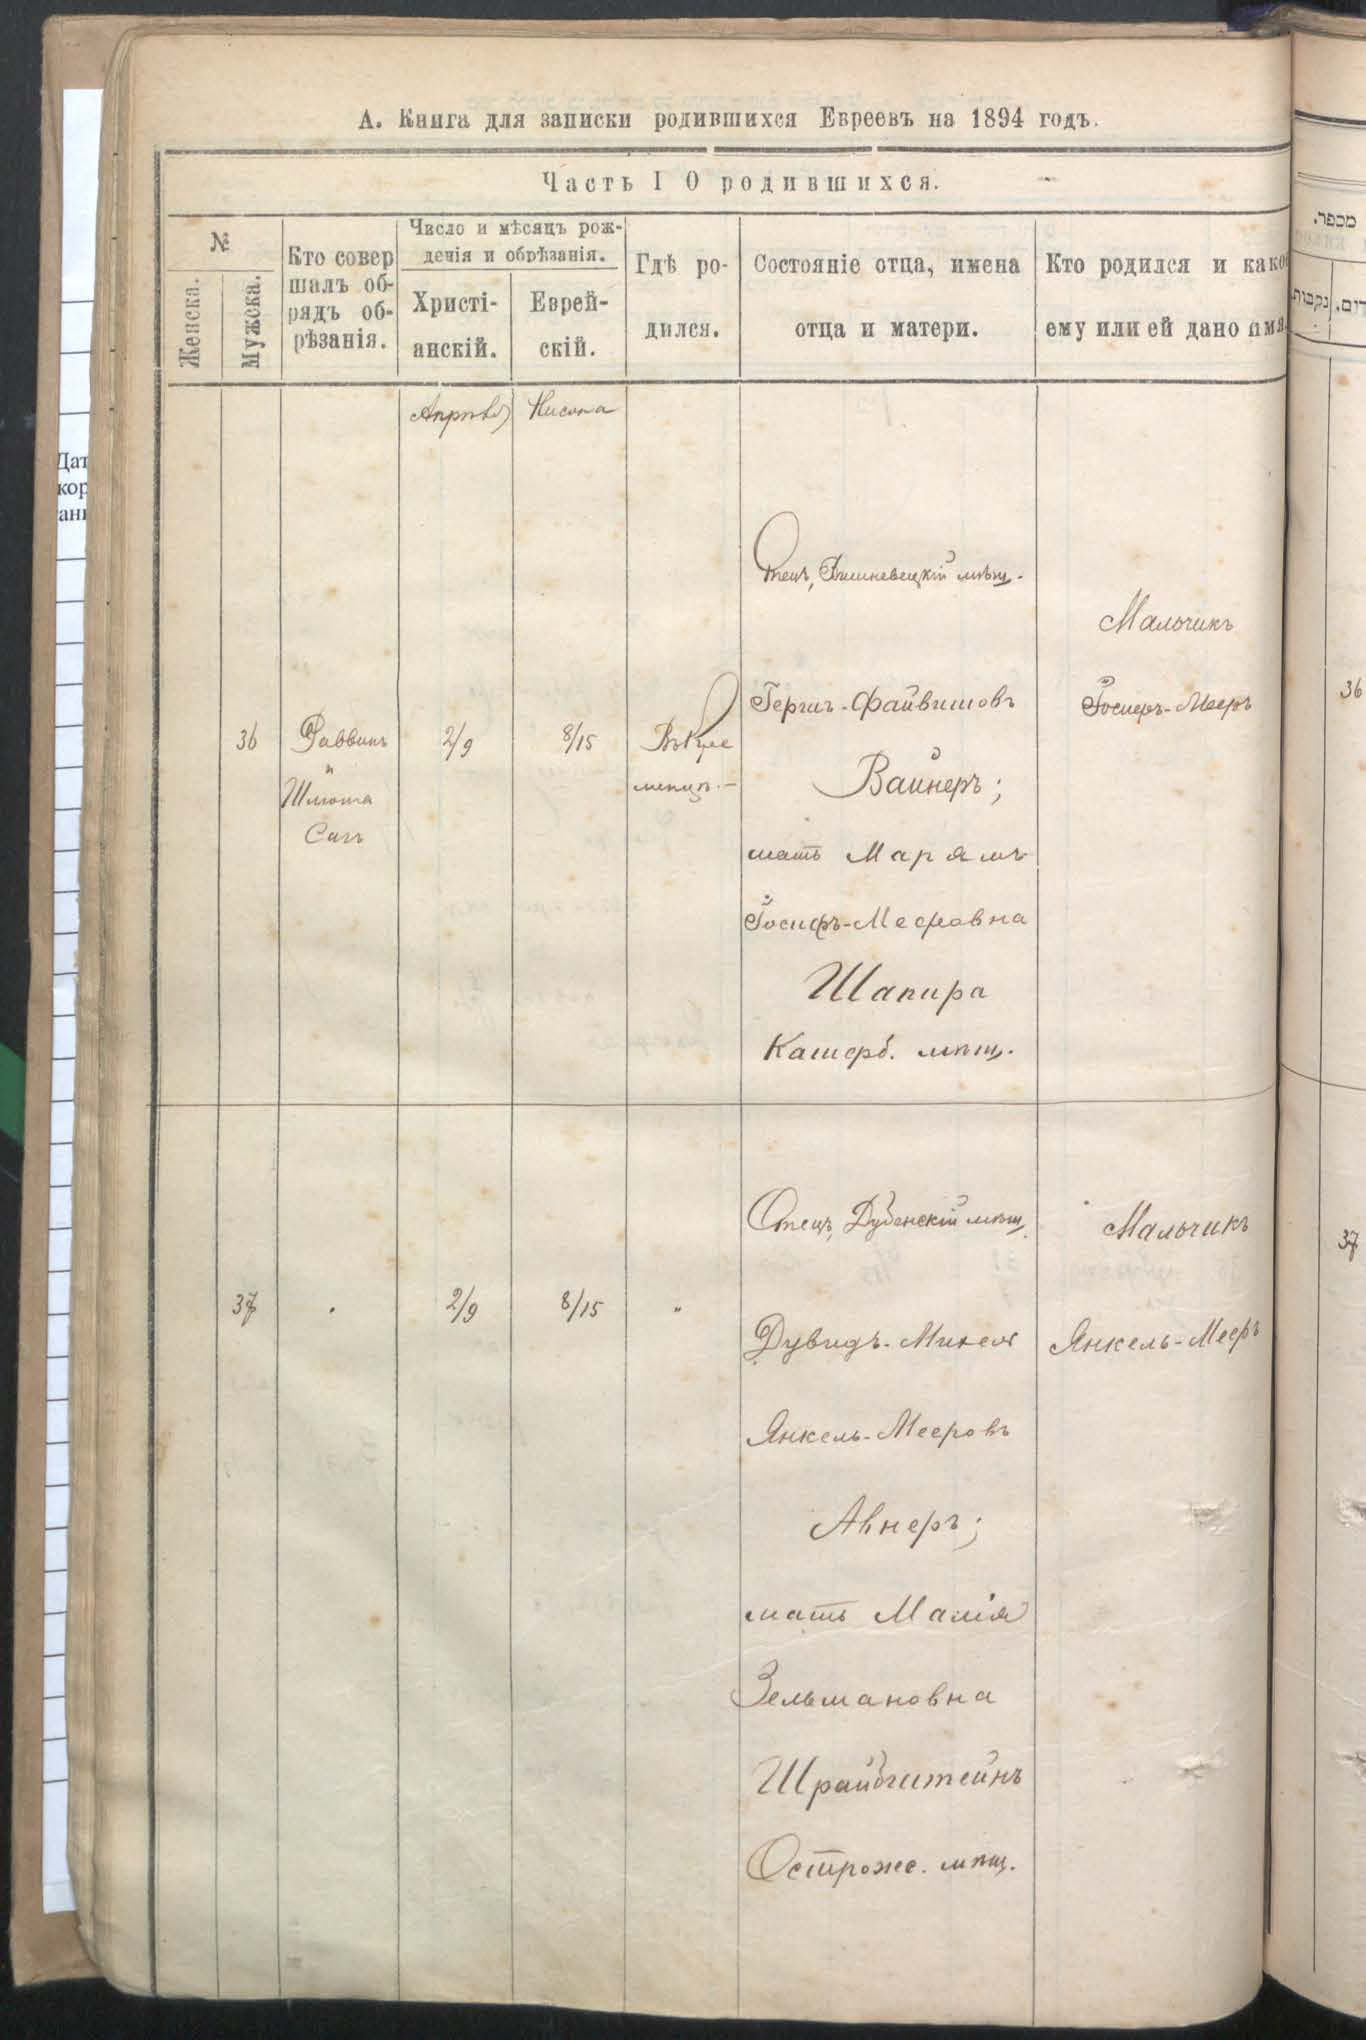 А. Книга для записки родившихся Евреевъ на 1894 годъ.
Часть I О родившихся.
№
Женска.
Мужска.
Кто совер
шалъ об-
рядъ об-
рѣзанія.
Число и мѣсяцъ рож-
денія и обрѣзанія.
Христі-
анскій.
Еврей-
скій.
Гдѣ ро-
дился.
Состояніе отца, имена
отца и матери.
Кто родился и како
ему или ей дано имя.
Апрѣль
Нисона
36
Раввинъ
и
Шлюма
2/9
8/15
Отецъ, Вишневецкій мѣщ.
Гершъ-Файвишовъ
Вайнеръ;
мать Марямъ
Іосифъ-Мееровна
Шапира
мѣщ.
Мальчикъ
Іосифъ-Мееръ
37
"
2/9
8/15
"
Отецъ, Дубенскій мѣщ.
Дувидъ-
Янкель-Мееровъ
Авнеръ;
мать Малія
Зельмановна
Шрайбштейнъ
Острожс. мѣщ.
Мальчикъ
Янкель-Мееръ
מספר.
נקבות.
36
37
Дат
кор